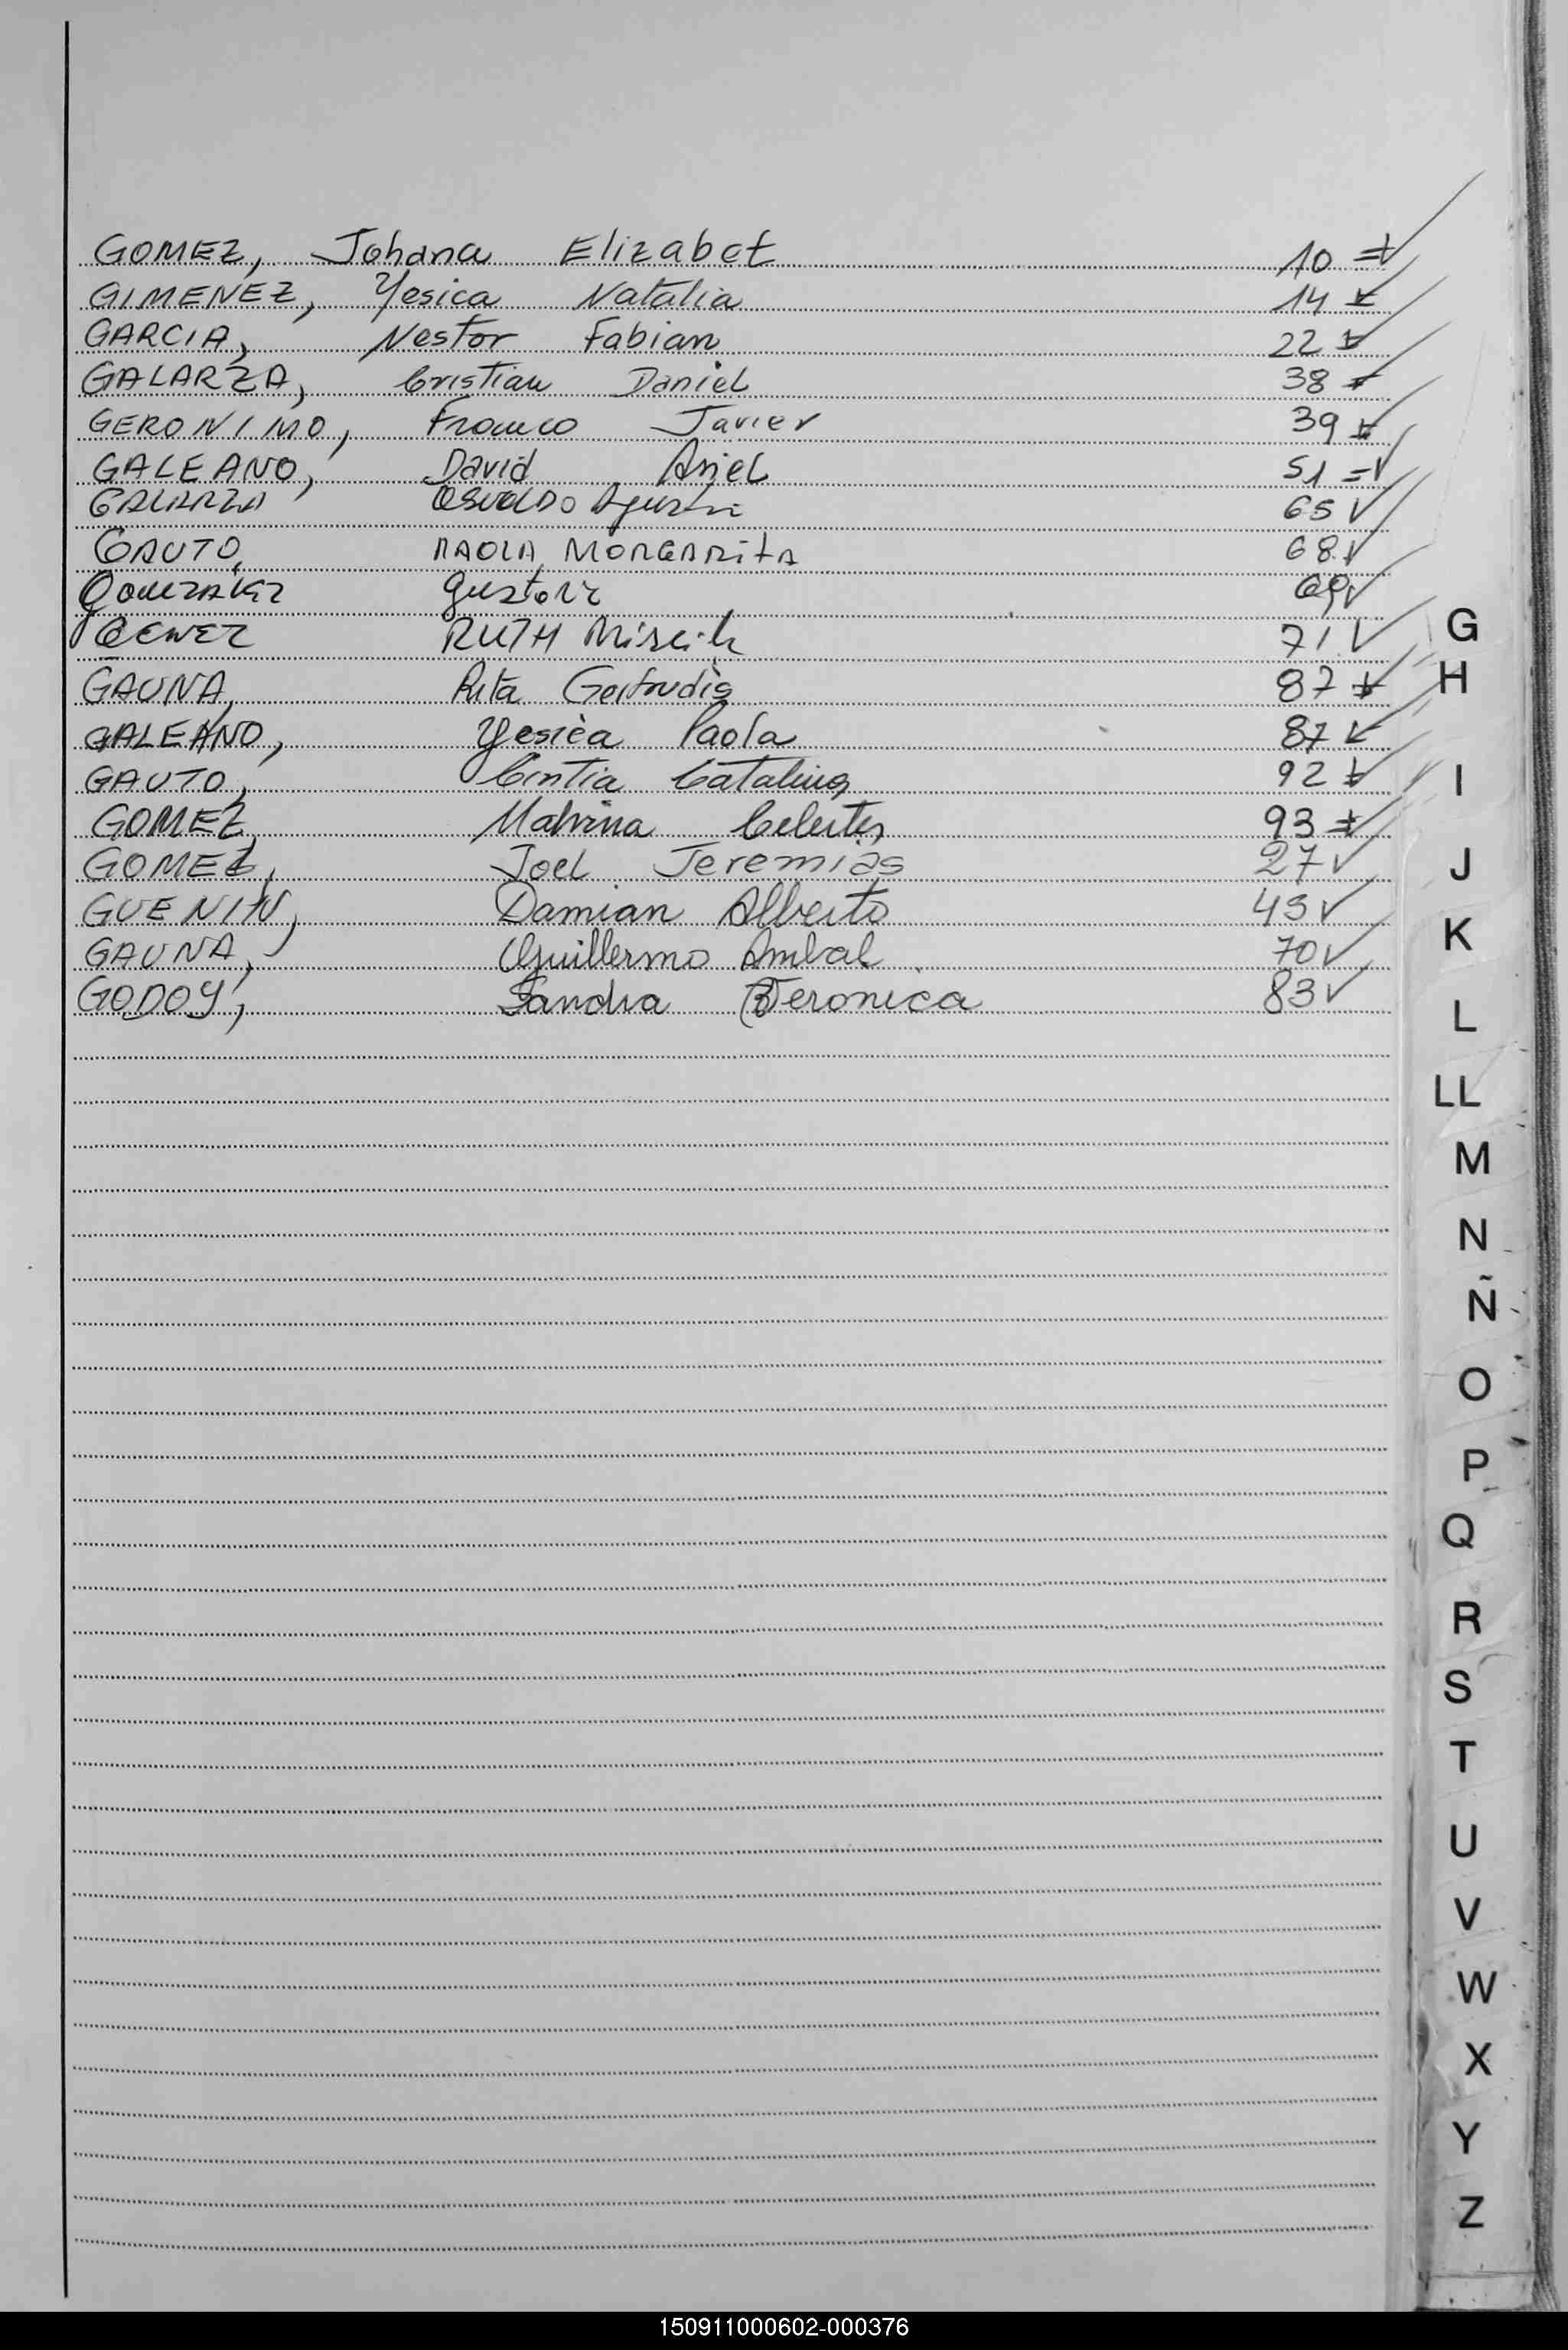 GOMEZ, Johana Elizabet 10 = ✓
GIMENEZ, Yesica Natalia 14 = ✓
GARCIA, Nestor Fabian 22 = ✓
GALARZA, Cristian Daniel 38 = ✓
GERONIMO, Franco Javier 39 = ✓
GALEANO, David Ariel 51 = ✓
GALARZA OSVALDO Agustin 65 ✓
GAUTO, PAOLA MARGARITA 68 ✓
Gonzalez Gustavo 69 ✓
RUTH 71 ✓
GAUNA, Rita Gertrudis 87 = ✓
GALEANO, Yesica Paola 87 = ✓
GAUTO, Cintia Catalina 92 = ✓
GOMEZ, Malvina Celeste 93 = ✓
GOMEZ, Joel Jeremias 27 ✓
GUENIN, Damian Alberto 43 ✓
GAUNA, Guillermo Anibal 70 ✓
GODOY, Sandra Veronica 83 ✓
G
H
I
J
K
L
LL
M
N
Ñ
O
P
Q
R
S
T
U
V
W
X
Y
Z
150911000602-000376